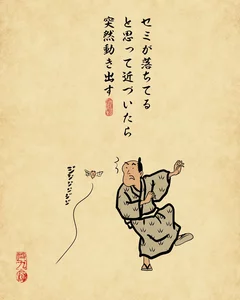 セミが落ちてる
と思って近づいたら
突然動き出す
ジジジジジジジ